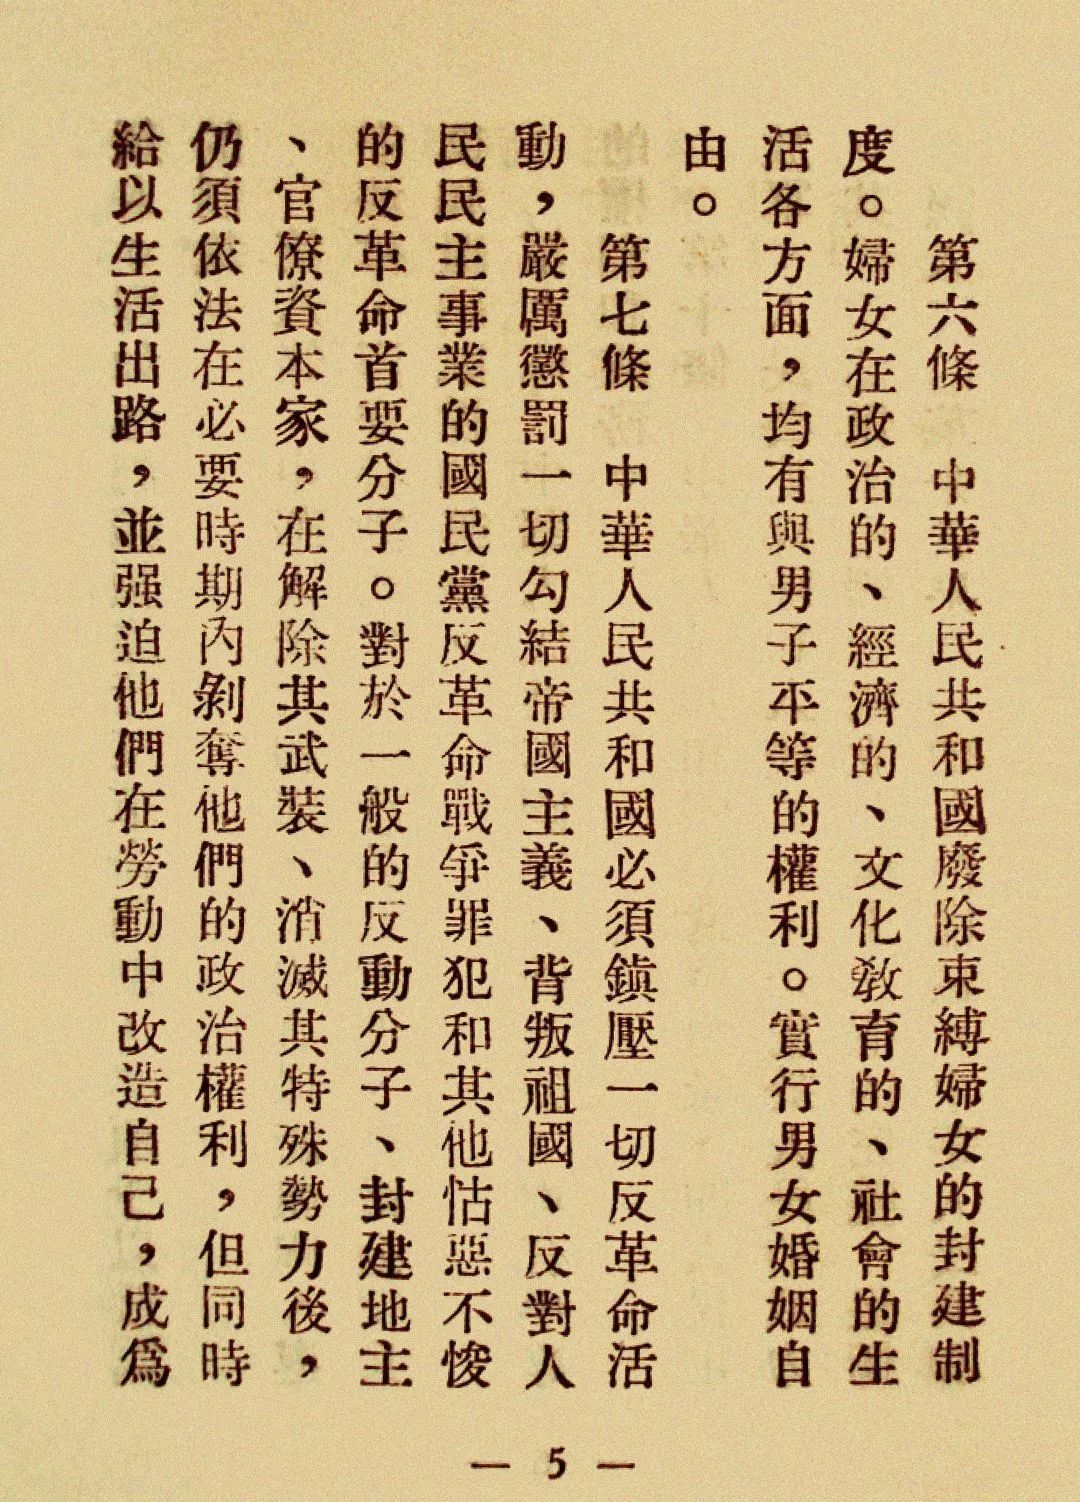 第六條　中華人民共和國廢除束縛婦女的封建制
度。婦女在政治的、經濟的、文化敎育的、社會的生
活各方面，均有與男子平等的權利。實行男女婚姻自
由。
第七條　中華人民共和國必須鎭壓一切反革命活
動，嚴厲懲罰一切勾結帝國主義、背叛祖國、反對人
民民主事業的國民黨反革命戰爭罪犯和其他怙惡不悛
的反革命首要分子。對於一般的反動分子、封建地主
、官僚資本家，在解除其武裝、消滅其特殊勢力後，
仍須依法在必要時期內剝奪他們的政治權利，但同時
給以生活出路，並强迫他們在勞動中改造自己，成爲
— 5 —